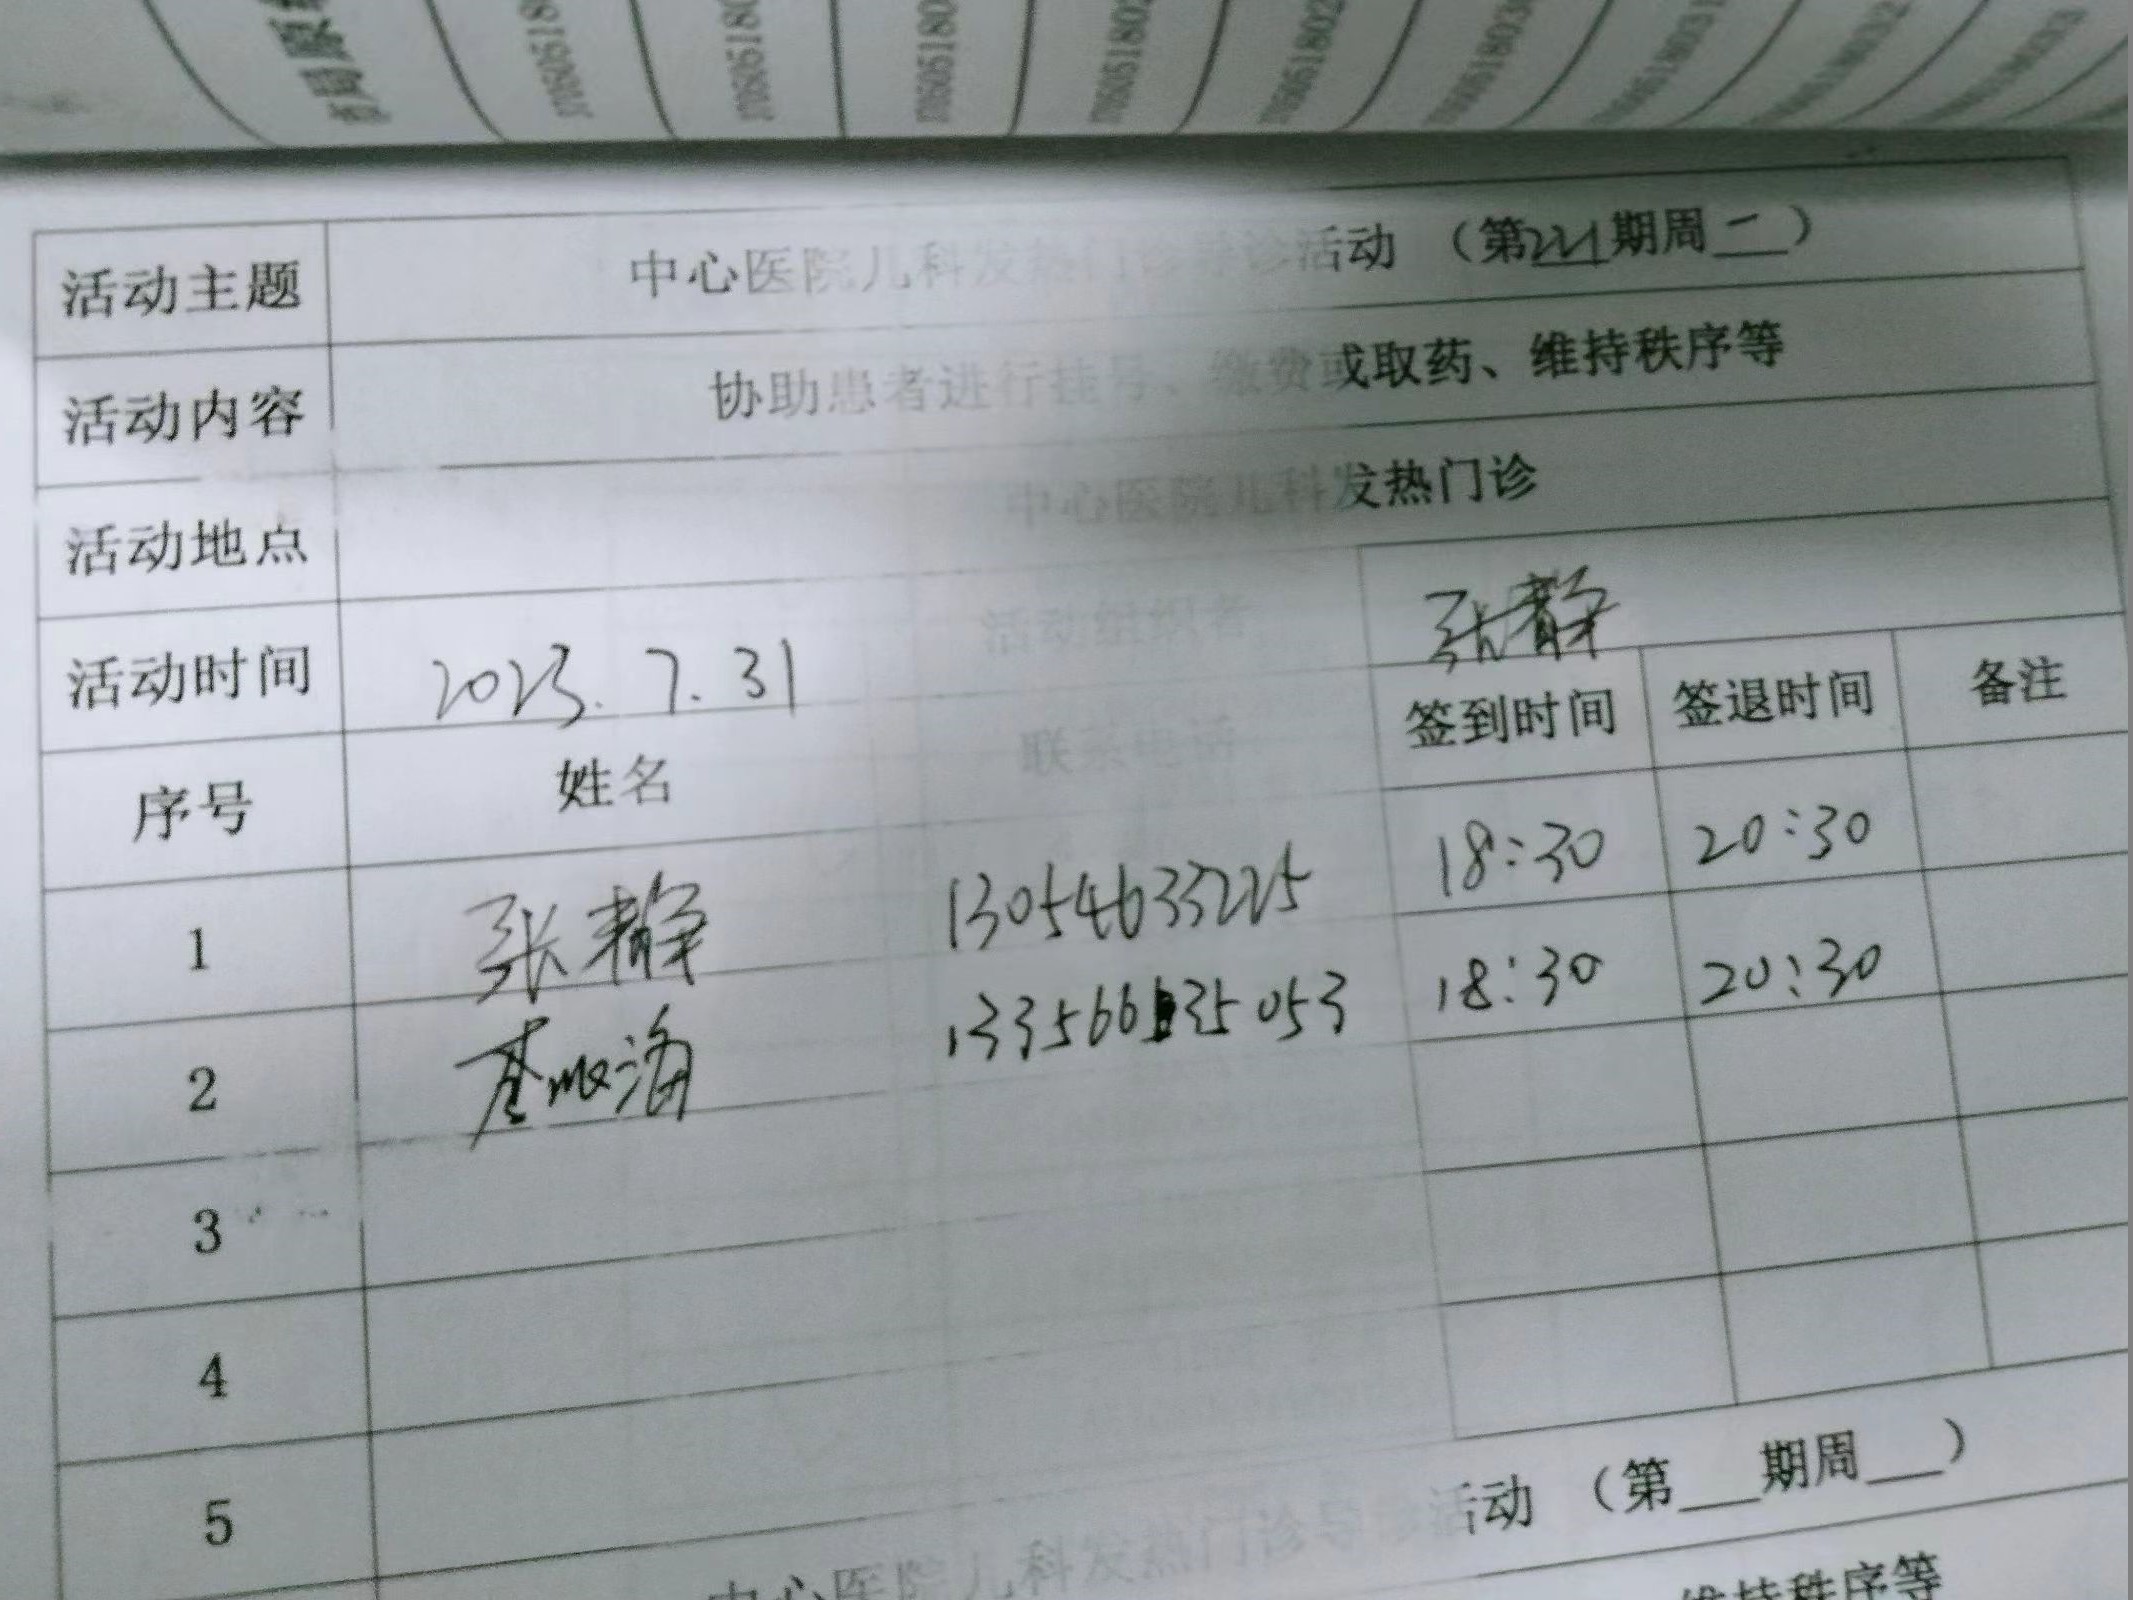 活动主题 中心医院儿科发热门诊导诊活动 （第221期周二）
活动内容 协助患者进行挂号、缴费或取药、维持秩序等
活动地点 中心医院儿科发热门诊
活动时间 2023.7.31 活动组织者 张静
序号 姓名 联系电话 签到时间 签退时间 备注
1 张静 13054633225 18:30 20:30
2 18:30 20:30
3
4
5
中心医院儿科发热门诊导诊活动 （第___期周___）
维持秩序等